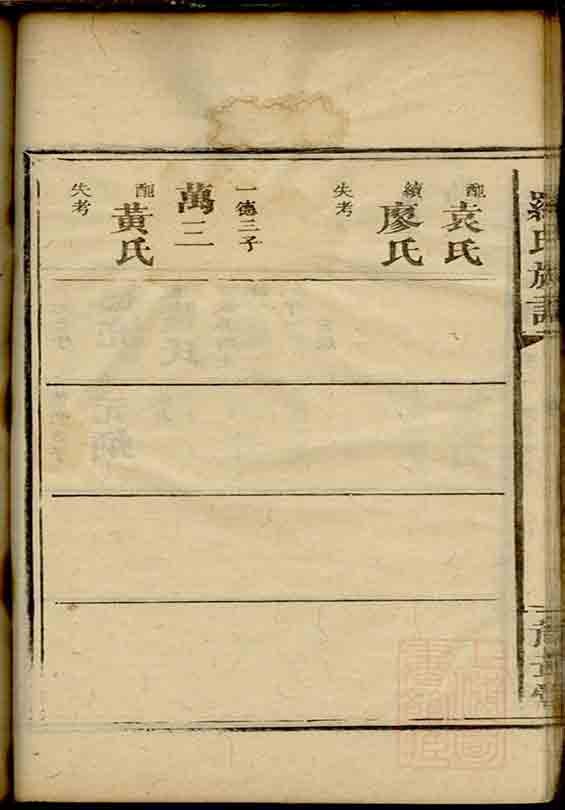 羅氏族譜
配袁氏
續廖氏
失考
一德三子
萬三
配黃氏
失考